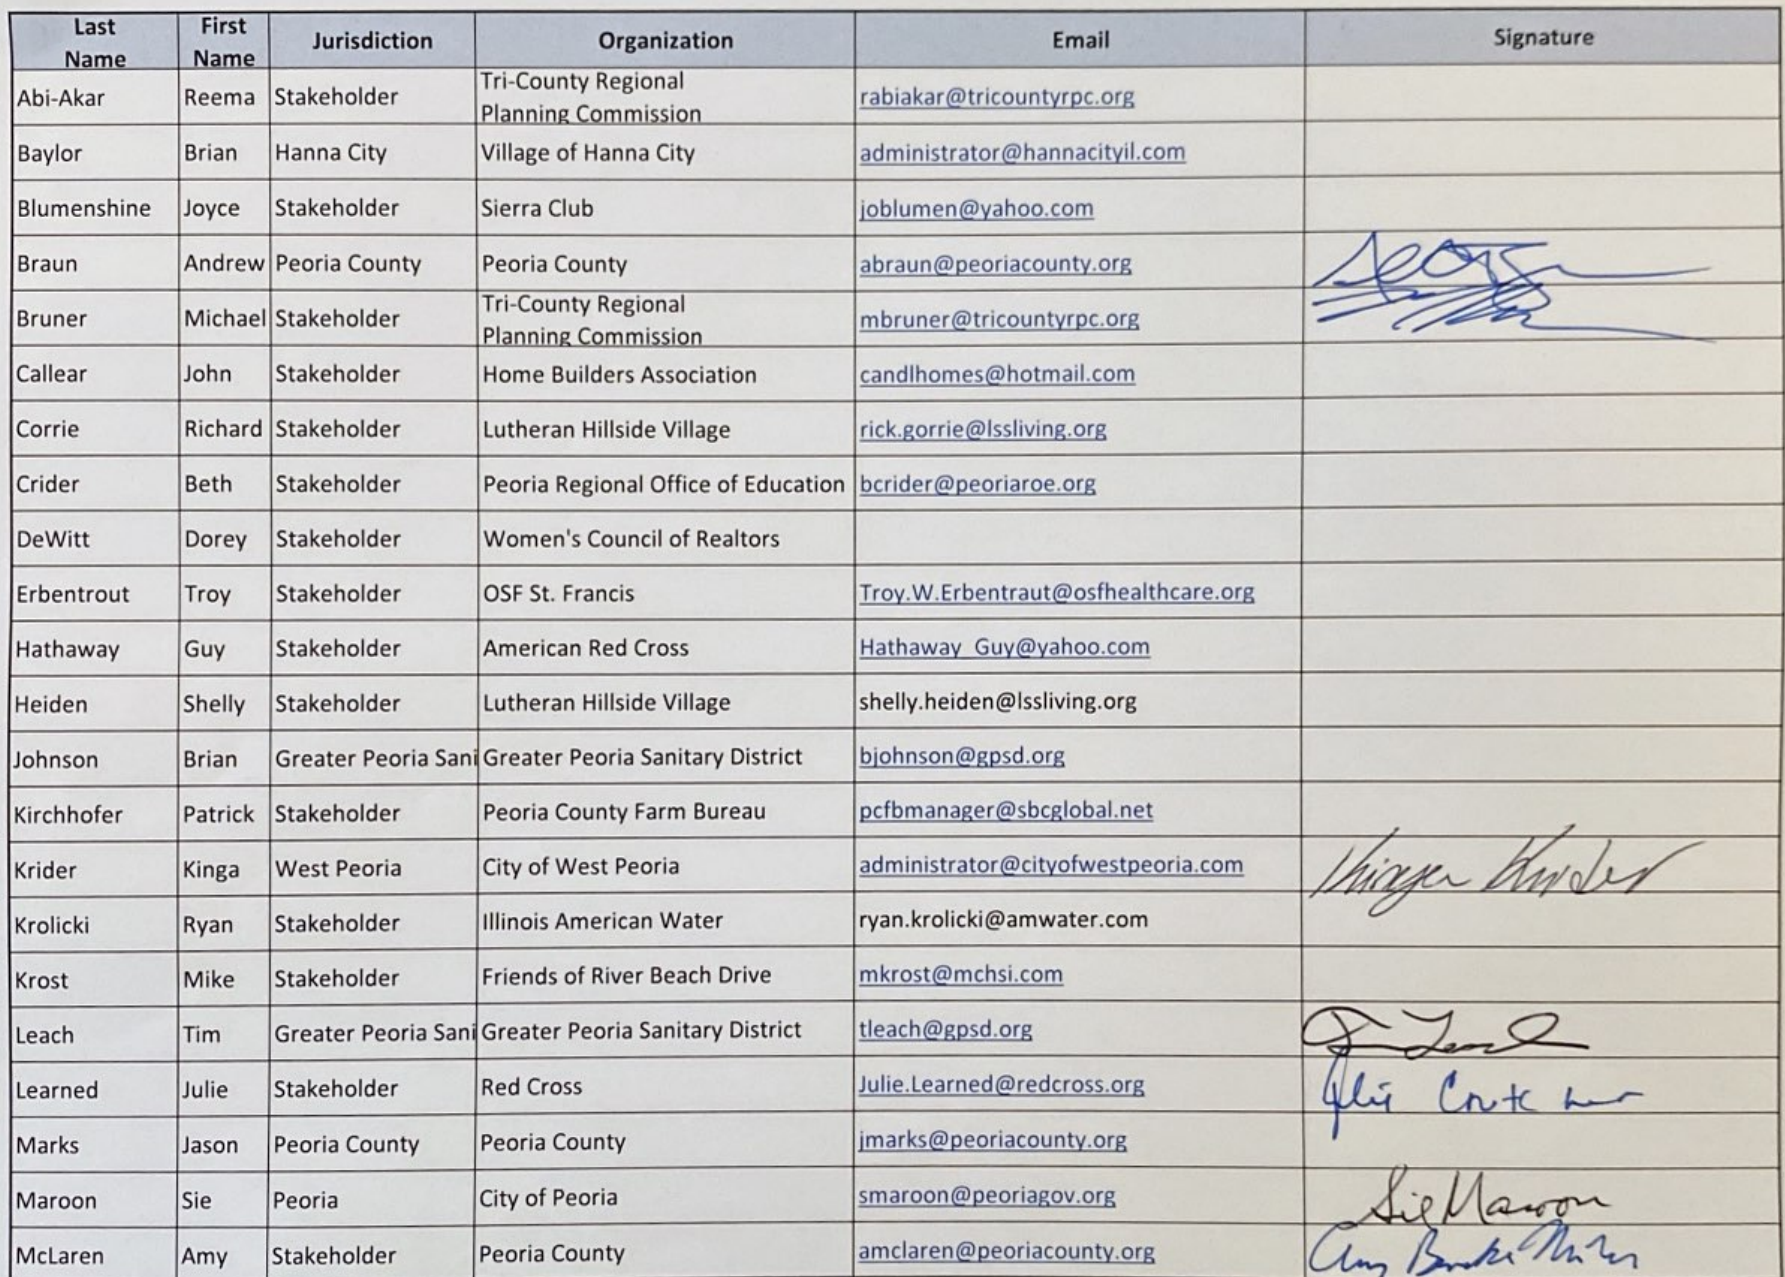 Last Name First Name Jurisdiction Organization Email Signature
Abi-Akar Reema Stakeholder Tri-County Regional Planning Commission rabiakar@tricountyrpc.org
Baylor Brian Hanna City Village of Hanna City administrator@hannacityil.com
Blumenshine Joyce Stakeholder Sierra Club joblumen@yahoo.com
Braun Andrew Peoria County Peoria County abraun@peoriacounty.org
Bruner Michael Stakeholder Tri-County Regional Planning Commission mbruner@tricountyrpc.org
Callear John Stakeholder Home Builders Association candlhomes@hotmail.com
Corrie Richard Stakeholder Lutheran Hillside Village rick.gorrie@lssliving.org
Crider Beth Stakeholder Peoria Regional Office of Education bcrider@peoriaroe.org
DeWitt Dorey Stakeholder Women's Council of Realtors
Erbentrout Troy Stakeholder OSF St. Francis Troy.W.Erbentraut@osfhealthcare.org
Hathaway Guy Stakeholder American Red Cross Hathaway_Guy@yahoo.com
Heiden Shelly Stakeholder Lutheran Hillside Village shelly.heiden@lssliving.org
Johnson Brian Greater Peoria Sani Greater Peoria Sanitary District bjohnson@gpsd.org
Kirchhofer Patrick Stakeholder Peoria County Farm Bureau pcfbmanager@sbcglobal.net
Krider Kinga West Peoria City of West Peoria administrator@cityofwestpeoria.com Kinga Krider
Krolicki Ryan Stakeholder Illinois American Water ryan.krolicki@amwater.com
Krost Mike Stakeholder Friends of River Beach Drive mkrost@mchsi.com
Leach Tim Greater Peoria Sani Greater Peoria Sanitary District tleach@gpsd.org
Learned Julie Stakeholder Red Cross Julie.Learned@redcross.org Julie
Marks Jason Peoria County Peoria County jmarks@peoriacounty.org
Maroon Sie Peoria City of Peoria smaroon@peoriagov.org Sie Maroon
McLaren Amy Stakeholder Peoria County amclaren@peoriacounty.org Amy